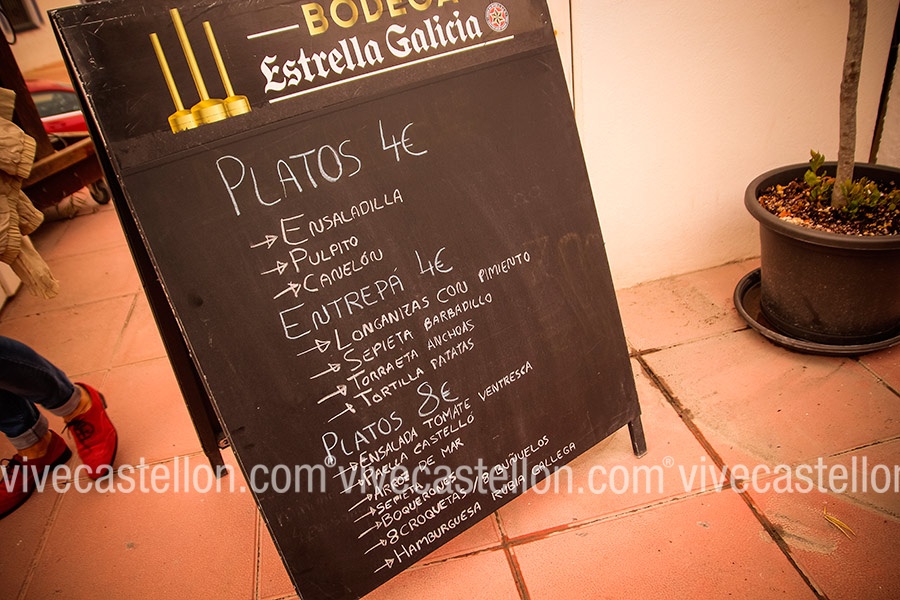 BODEGA
Estrella Galicia
PLATOS 4€
→ ENSALADILLA
→ PULPITO
→ CANELÓN
ENTREPÁ 4€
→ LONGANIZAS CON PIMIENTO
→ SEPIETA BARBADILLO
→ TORRAETA ANCHOAS
→ TORTILLA PATATAS
PLATOS 8€
→ ENSALADA TOMATE VENTRESCA
→ PAELLA CASTELLÓ
→ ARROZ DE MAR
→ SEPIETA
→ BOQUERONES
→ 8 CROQUETAS / 8 BUÑUELOS
→ HAMBURGUESA IRUBIA GALLEGA
vivecastellon.com® vivecastellon.com® vivecastellon